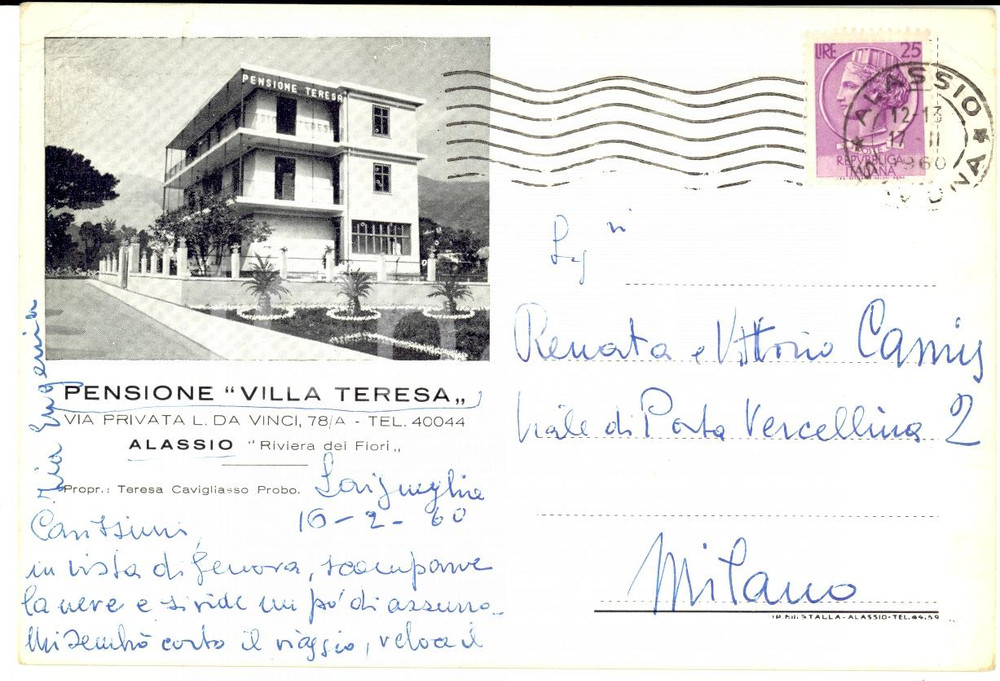 PENSIONE TERESA
LIRE 25
REPVBBLICA
ITALIANA
ALASSIO
12-13
17 II
960
Sig.ri
Renata e Vittorio
Viale di Porta Vercellina 2
Milano
PENSIONE “VILLA TERESA„
VIA PRIVATA L. DA VINCI, 78/A - TEL. 40044
ALASSIO “Riviera dei Fiori„
Propr.: Teresa Cavigliasso Probo.
Laigueglia
16-2-60
Carissimi,
in vista di Genova, scomparve
la neve e si vide un po' di azzurro.
Mi sembrò corto il viaggio, veloce il
Zia Eugenia
STALLA-ALASSIO-TEL.44.59